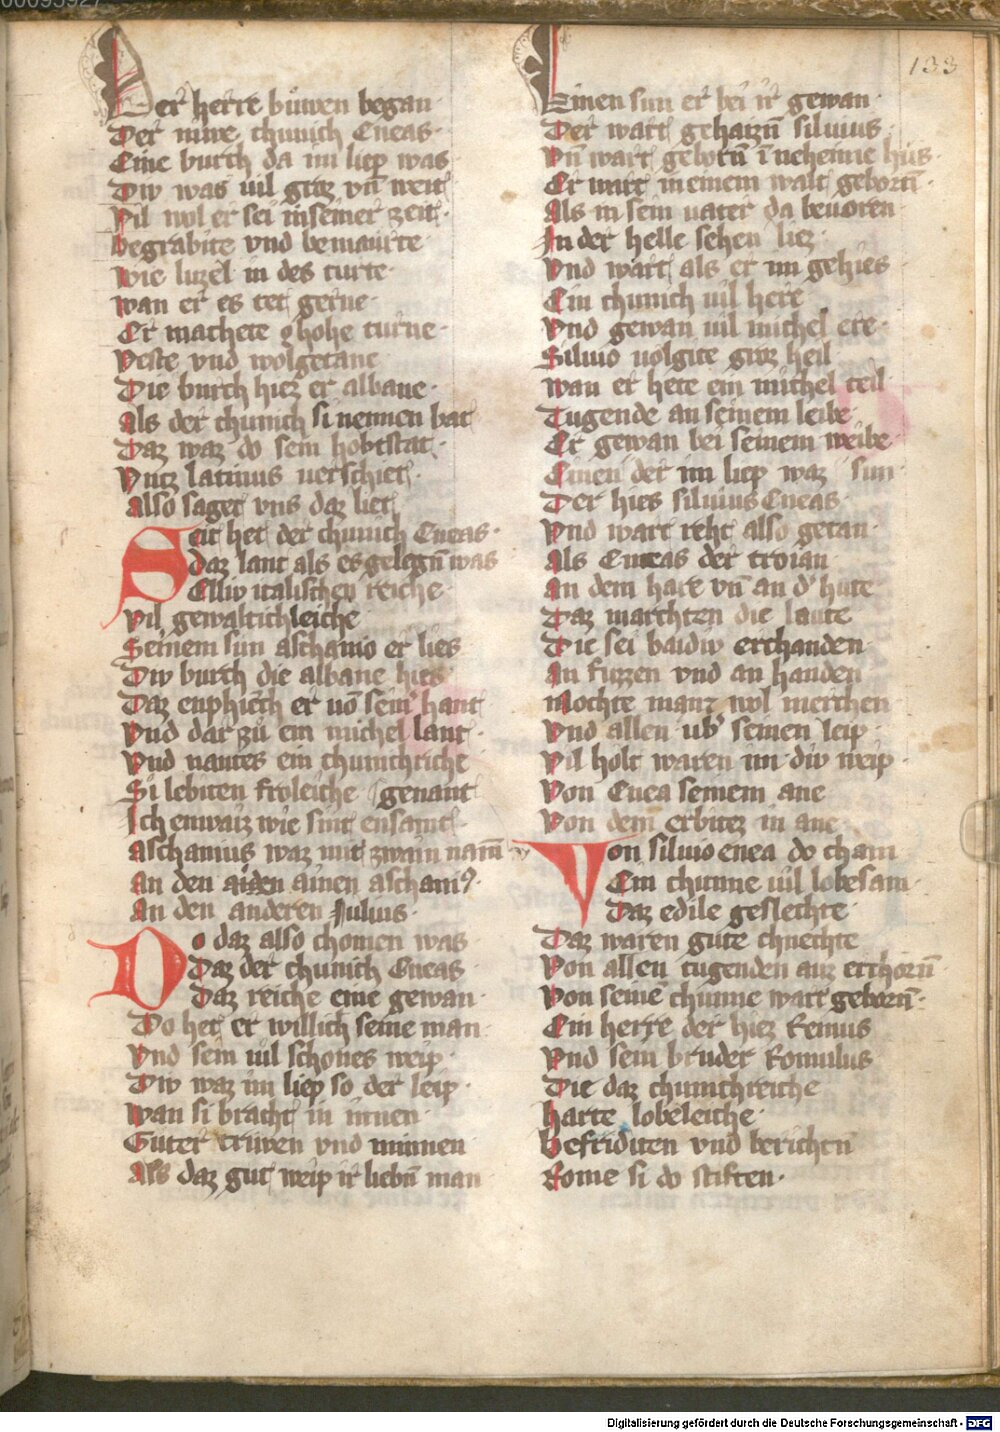 133
Der herre bůwen began
Der niwe chunich Eneas
Eine burch da im liep was
Diw was uil groz vn̄ weit
Vil wol er sei in seiner zeit
Begrabite vnd bemaurte
Wie luzel in des turte
wan er es tet gerne
Er machete hohe turne
Veste vnd wolgetane
Die burch hiez er albane
Als der chunich si nennen bat
Daz waz do sein hobtstat
Vntz latinus uerschiet
Also saget vns daz liet
Seit het der chunich Eneas
daz lant als es gelegn̄ was
Elliv italischen reiche
Vil gewaltichleiche
Seinem sun aschanio er lies
Diw burch die albane hies
Daz enphiēch er uō seiň hant
Vnd dar zů ein michel lant
Vnd nantes ein chunichriche
Si lebiten froleiche genant
Ich enwaiz wie sint ensamt
Aschanius waz mit zwain namn̄
An den aigen ainen aschani9
An den anderen Julius
Do daz also chomen was
Daz der chunich Eneas
Daz reiche eine gewan
Do het er willich seine man
Vnd sein uil schones weip
Diw waz im liep so der leip
wan si bracht in innen
Guter triwen vnd minnen
Als daz gut weip ir liebn̄ man
Einen sun er bei ir gewan
Der wart gehaizn̄ siluius
Vn̄ wart geborn̄ ī ncheinne hůs
Er wart in einem walt geborn̄
Als in sein uater da beuoren
In der helle sehen liez
Vnd wart als er im gehies
Ein chunich uil here
Vnd gewan uil michel ere
Siluio uolgite groz heil
wan er hete ein michel teil
Tugende an seinem leibe
Er gewan bei seinem weibe
Einen der im liep waz sun
Der hies siluius Eneas
Vnd wart reht also getan
Als Eneas der troian
An dem hare vn̄ an d' hute
Daz marchten die laute
Die sei baidiv erchanden
An fuzzen vnd an handen
Mochte manz wol merchen
Vnd allen ub' seinen leip
Vil holt waren im div weip
Von Enea seinem ane
Von dem erbitez in ane
Von siluio enea do cham
Ein chunne uil lobesam
Daz edile geslechte
Daz waren gute chnechte
Von allen tugenden auz erchorn̄
Von seinē chunne wart geborn̄
Ein herre der hiez Remus
Vnd sein bruder Romulus
Die daz chunichreiche
harte lobeleiche
Befriduten vnd berichen
Rome si do stiften
Digitalisierung gefördert durch die Deutsche Forschungsgemeinschaft - DFG